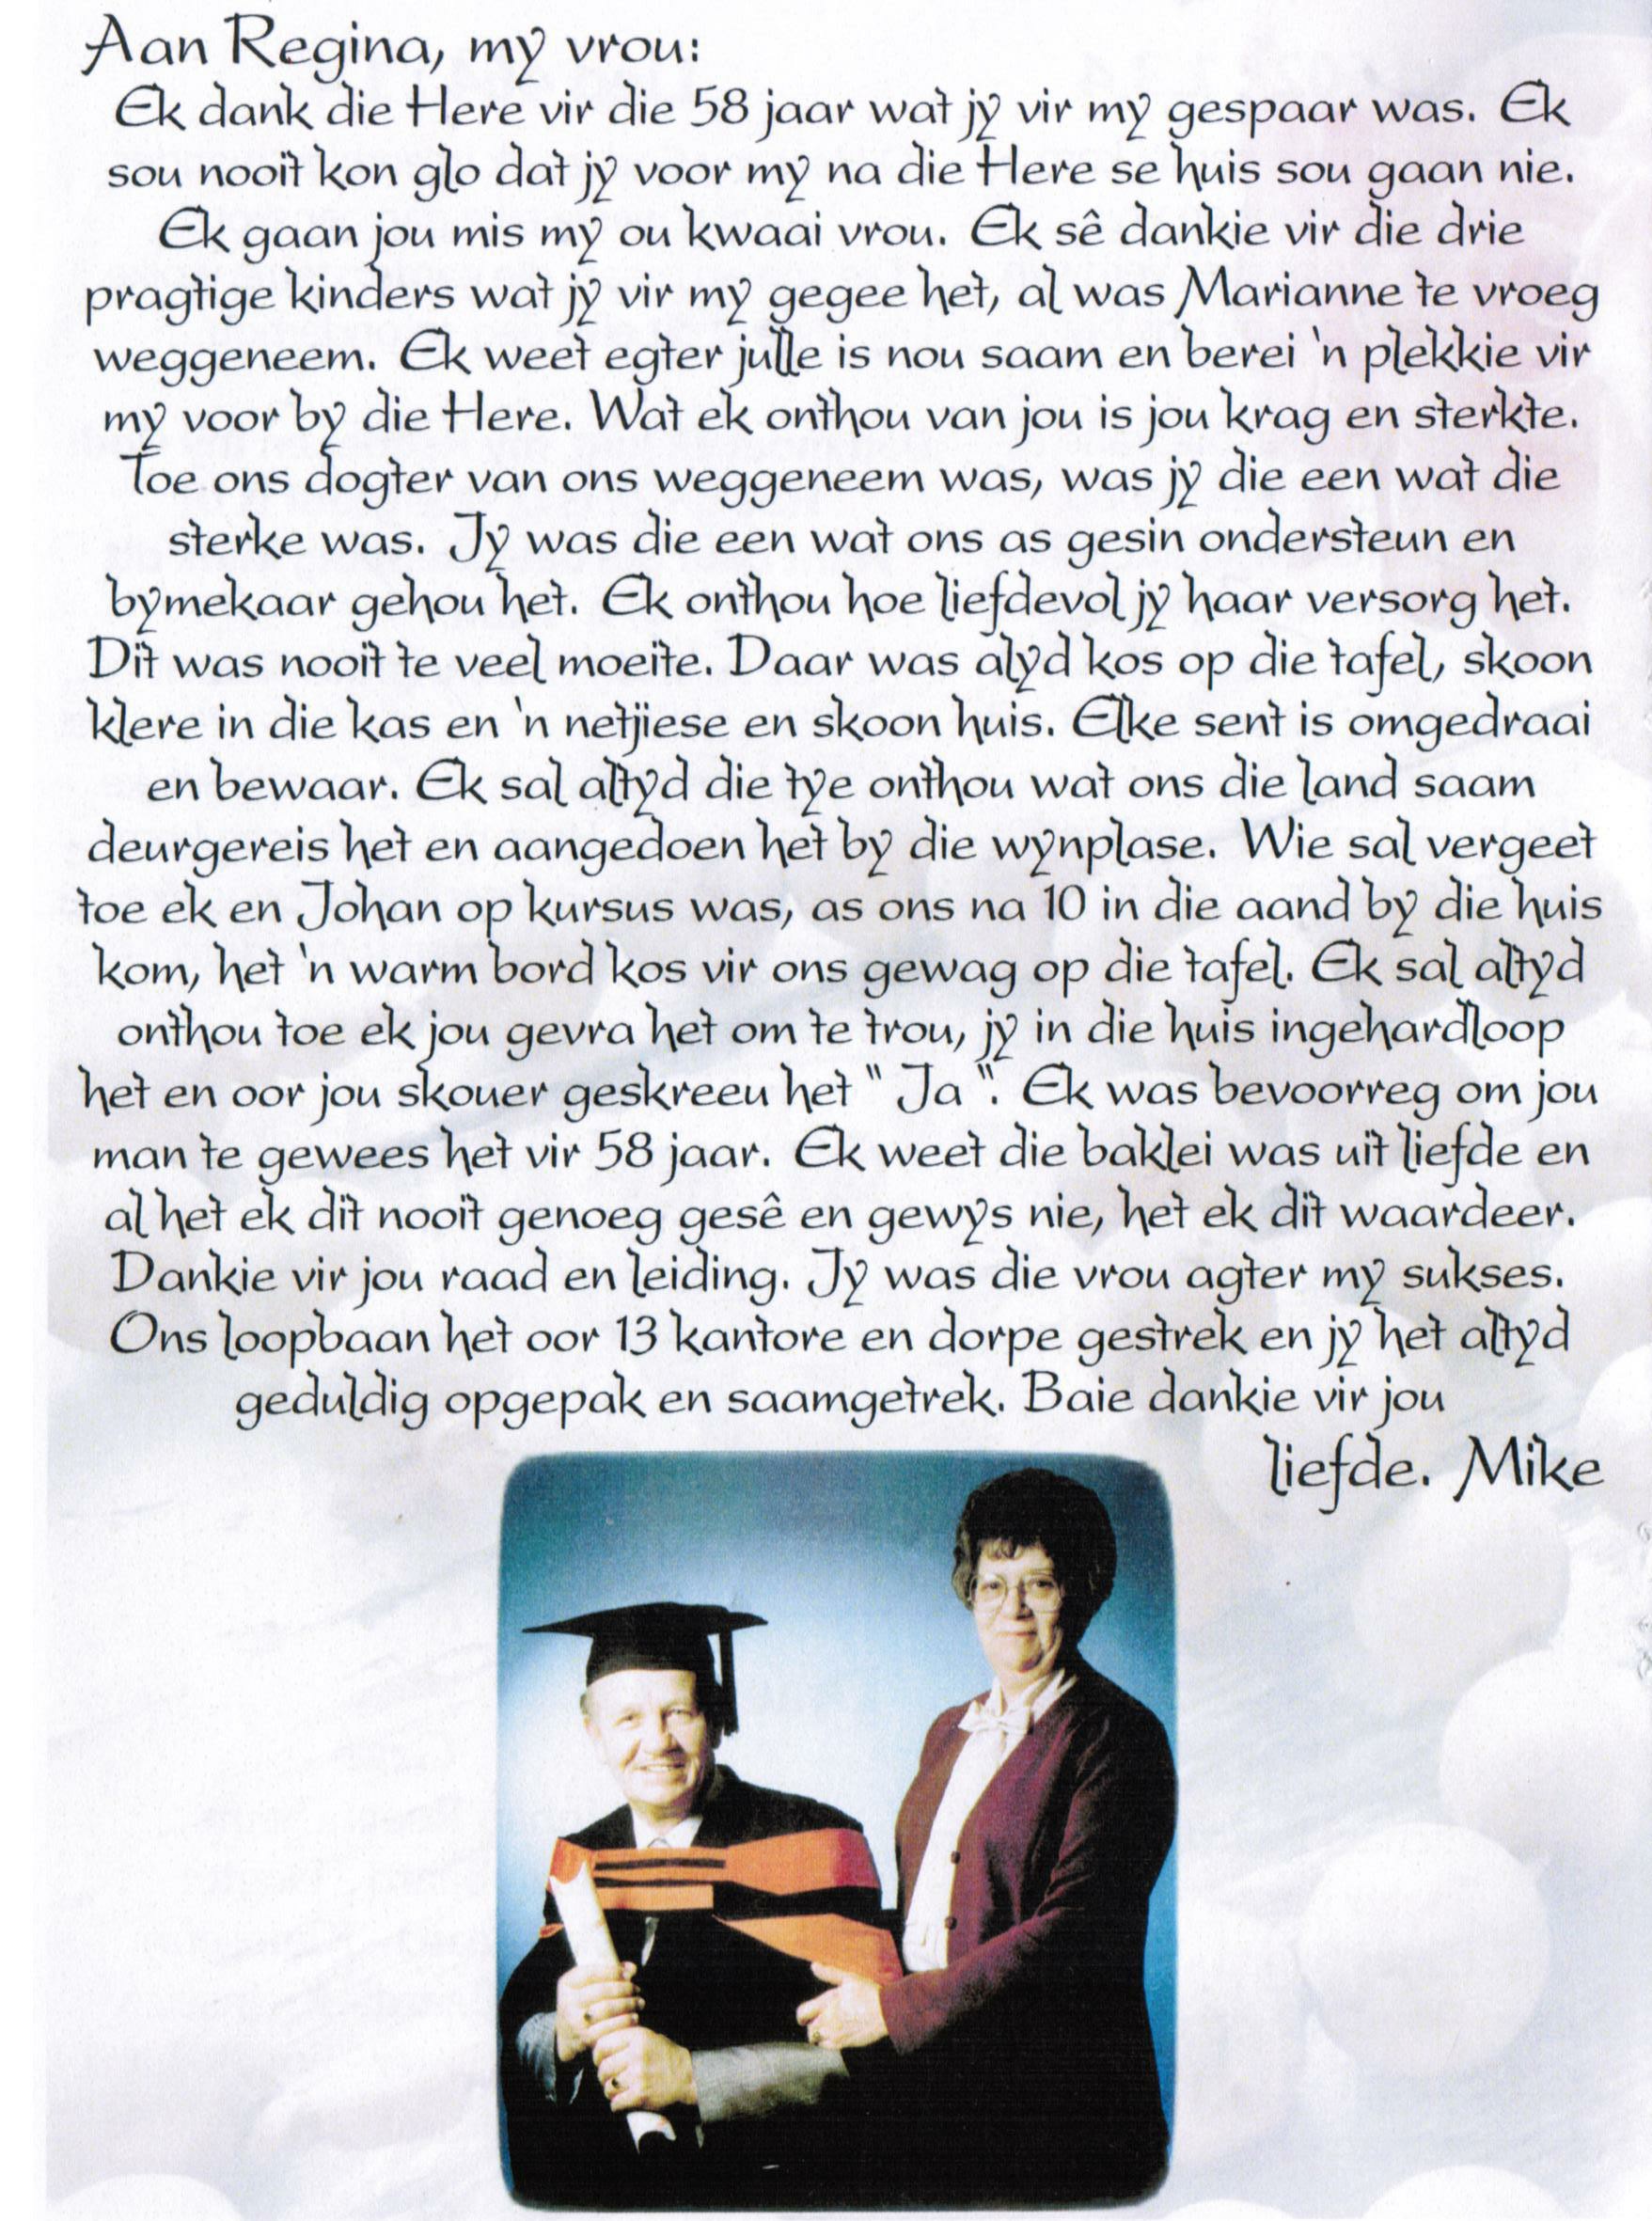 Aan Regina, my vrou:
Ek dank die Here vir die 58 jaar wat jy vir my gespaar was. Ek
sou nooit kon glo dat jy voor my na die Here se huis sou gaan nie.
Ek gaan jou mis my ou kwaai vrou. Ek sê dankie vir die drie
pragtige kinders wat jy vir my gegee het, al was Marianne te vroeg
weggeneem. Ek weet egter julle is nou saam en berei 'n plekkie vir
my voor by die Here. Wat ek onthou van jou is jou krag en sterkte.
Toe ons dogter van ons weggeneem was, was jy die een wat die
sterke was. Jy was die een wat ons as gesin ondersteun en
bymekaar gehou het. Ek onthou hoe liefdevol jy haar versorg het.
Dit was nooit te veel moeite. Daar was alyd kos op die tafel, skoon
klere in die kas en 'n netjiese en skoon huis. Elke sent is omgedraai
en bewaar. Ek sal altyd die tye onthou wat ons die land saam
deurgereis het en aangedoen het by die wynplase. Wie sal vergeet
toe ek en Johan op kursus was, as ons na 10 in die aand by die huis
kom, het 'n warm bord kos vir ons gewag op die tafel. Ek sal altyd
onthou toe ek jou gevra het om te trou, jy in die huis ingehardloop
het en oor jou skouer geskreeu het " Ja ". Ek was bevoorreg om jou
man te gewees het vir 58 jaar. Ek weet die baklei was uit liefde en
al het ek dit nooit genoeg gesê en gewys nie, het ek dit waardeer.
Dankie vir jou raad en leiding. Jy was die vrou agter my sukses.
Ons loopbaan het oor 13 kantore en dorpe gestrek en jy het altyd
geduldig opgepak en saamgetrek. Baie dankie vir jou
liefde. Mike